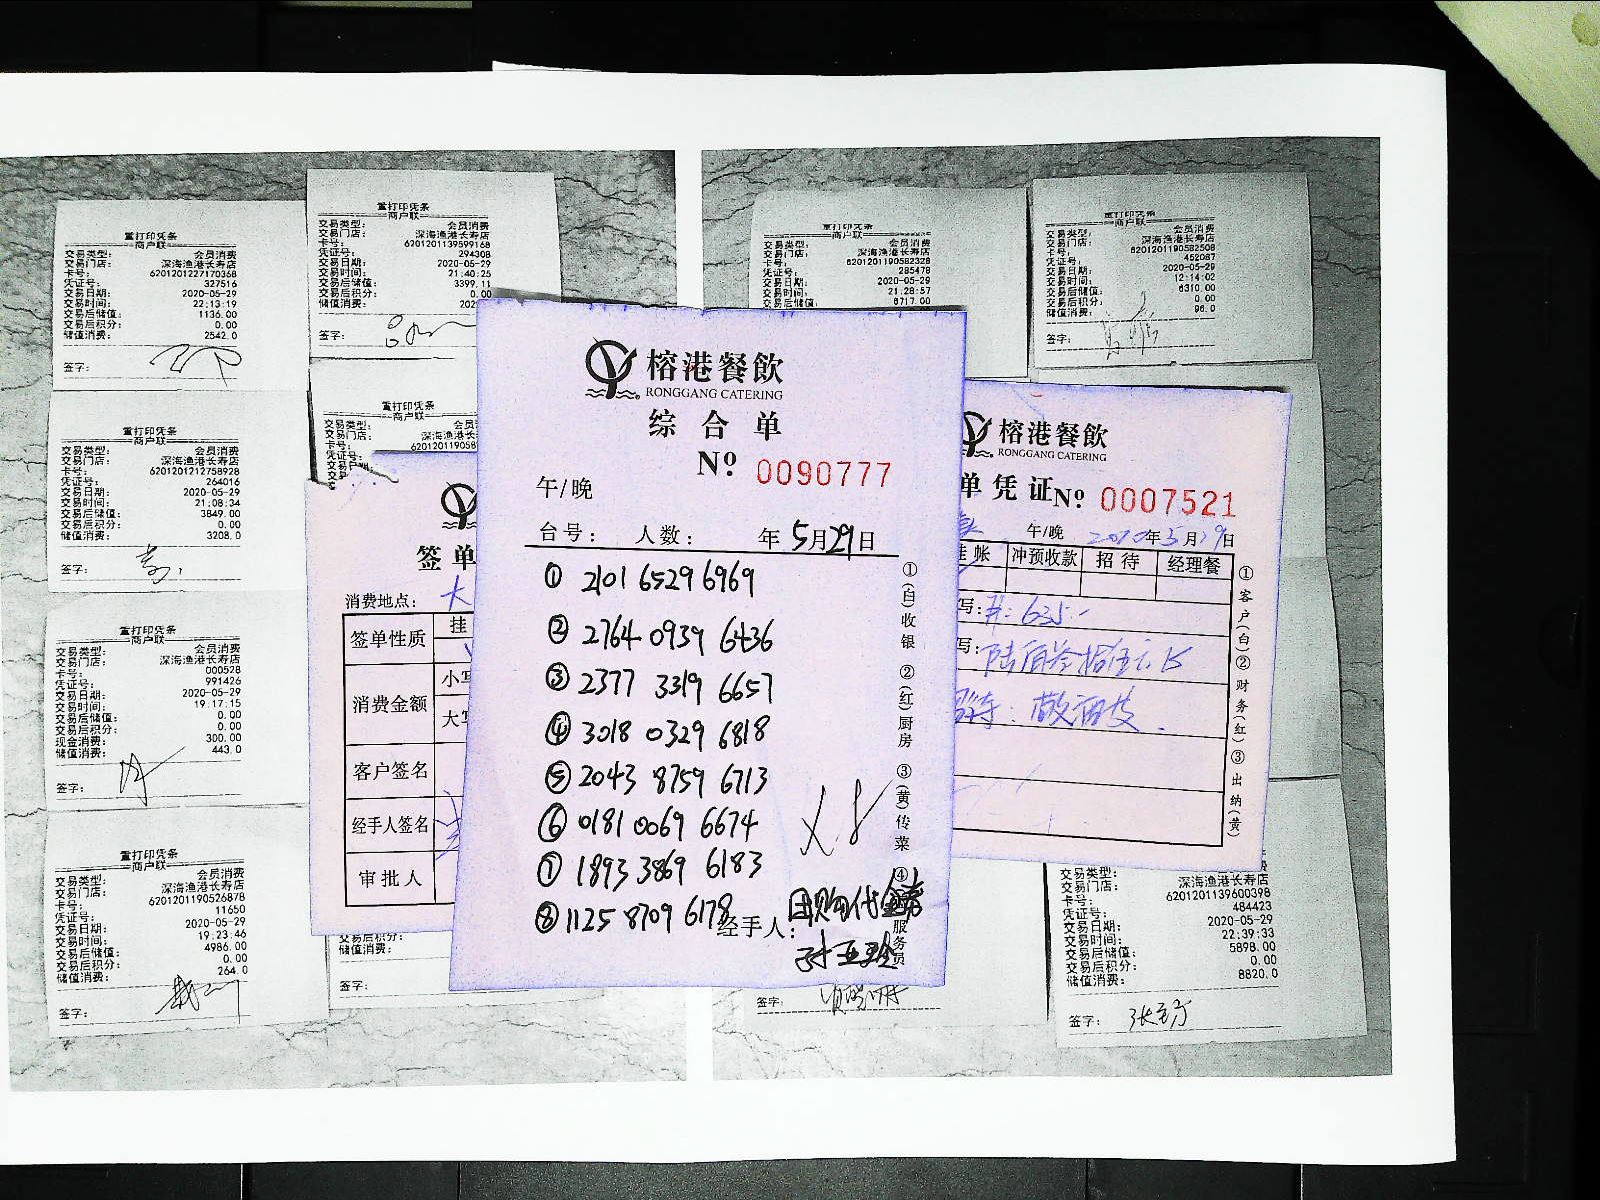 重打印凭条
商户联
交易类型: 会员消费
交易门店: 深海渔港长寿店
卡号: 6201201227170368
凭证号: 327516
交易日期: 2020-05-29
交易时间: 22:13:19
交易后储值: 1136.00
交易后积分: 0.00
储值消费: 2542.0
签字:
重打印凭条
商户联
交易类型: 会员消费
交易门店: 深海渔港长寿店
卡号: 6201201212758928
凭证号: 264016
交易日期: 2020-05-29
交易时间: 21:08:34
交易后储值: 3849.00
交易后积分: 0.00
储值消费: 3208.0
签字:
重打印凭条
商户联
交易类型: 会员消费
交易门店: 深海渔港长寿店
卡号: 000528
凭证号: 991426
交易日期: 2020-05-29
交易时间: 19:17:15
交易后储值: 0.00
交易后积分: 0.00
现金消费: 300.00
储值消费: 443.0
签字:
重打印凭条
商户联
交易类型: 会员消费
交易门店: 深海渔港长寿店
卡号: 6201201190526878
凭证号: 11650
交易日期: 2020-05-29
交易时间: 19:23:46
交易后储值: 4986.00
交易后积分: 0.00
储值消费: 264.0
签字:
重打印凭条
商户联
交易类型: 会员消费
交易门店: 深海渔港长寿店
卡号: 6201201139599168
凭证号: 294308
交易日期: 2020-05-29
交易时间: 21:40:25
交易后储值: 3399.11
交易后积分: 0.00
储值消费: 202
签字:
重打印凭条
商户联
交易类型: 会员
交易门店: 深海渔港长
卡号: 620120119058
凭证号:
签单
消费地点: 大
签单性质 挂
消费金额 小写
大写
客户签名
经手人签名
审批人
签字:
榕港餐飲
RONGGANG CATERING
综合单
Nº 0090777
午/晚
台号: 人数: 年5月29日
① 2101 6529 6969
② 2764 0939 6436
③ 2377 3319 6657
④ 3018 0329 6818
⑤ 2043 8759 6713
⑥ 0181 0069 6674
⑦ 1893 3869 6183
⑧ 1125 8709 6178
经手人: 团购代金券
孙亚玲
①(白)收银 ②(红)厨房 ③(黄)传菜 ④服务员
重打印凭条
商户联
交易类型: 会员消费
交易门店: 深海渔港长寿店
卡号: 6201201190582328
凭证号: 285478
交易日期: 2020-05-29
交易时间: 21:28:57
交易后储值: 6717.00
签字:
重打印凭条
商户联
交易类型: 会员消费
交易门店: 深海渔港长寿店
卡号: 6201201190582508
凭证号: 452087
交易日期: 2020-05-29
交易时间: 12:14:02
交易后储值: 6310.00
交易后积分: 0.00
储值消费: 96.0
签字:
榕港餐飲
RONGGANG CATERING
单凭证Nº 0007521
午/晚 2020年5月29日
挂帐 冲预收款 招待 经理餐
写: 635.-
写: 陆佰叁拾伍元
①客户(白)②财务(红)③出纳(黄)
交易类型: 会员消费
交易门店: 深海渔港长寿店
卡号: 6201201139600398
凭证号: 484423
交易日期: 2020-05-29
交易时间: 22:39:33
交易后储值: 5898.00
交易后积分: 0.00
储值消费: 8820.0
签字: